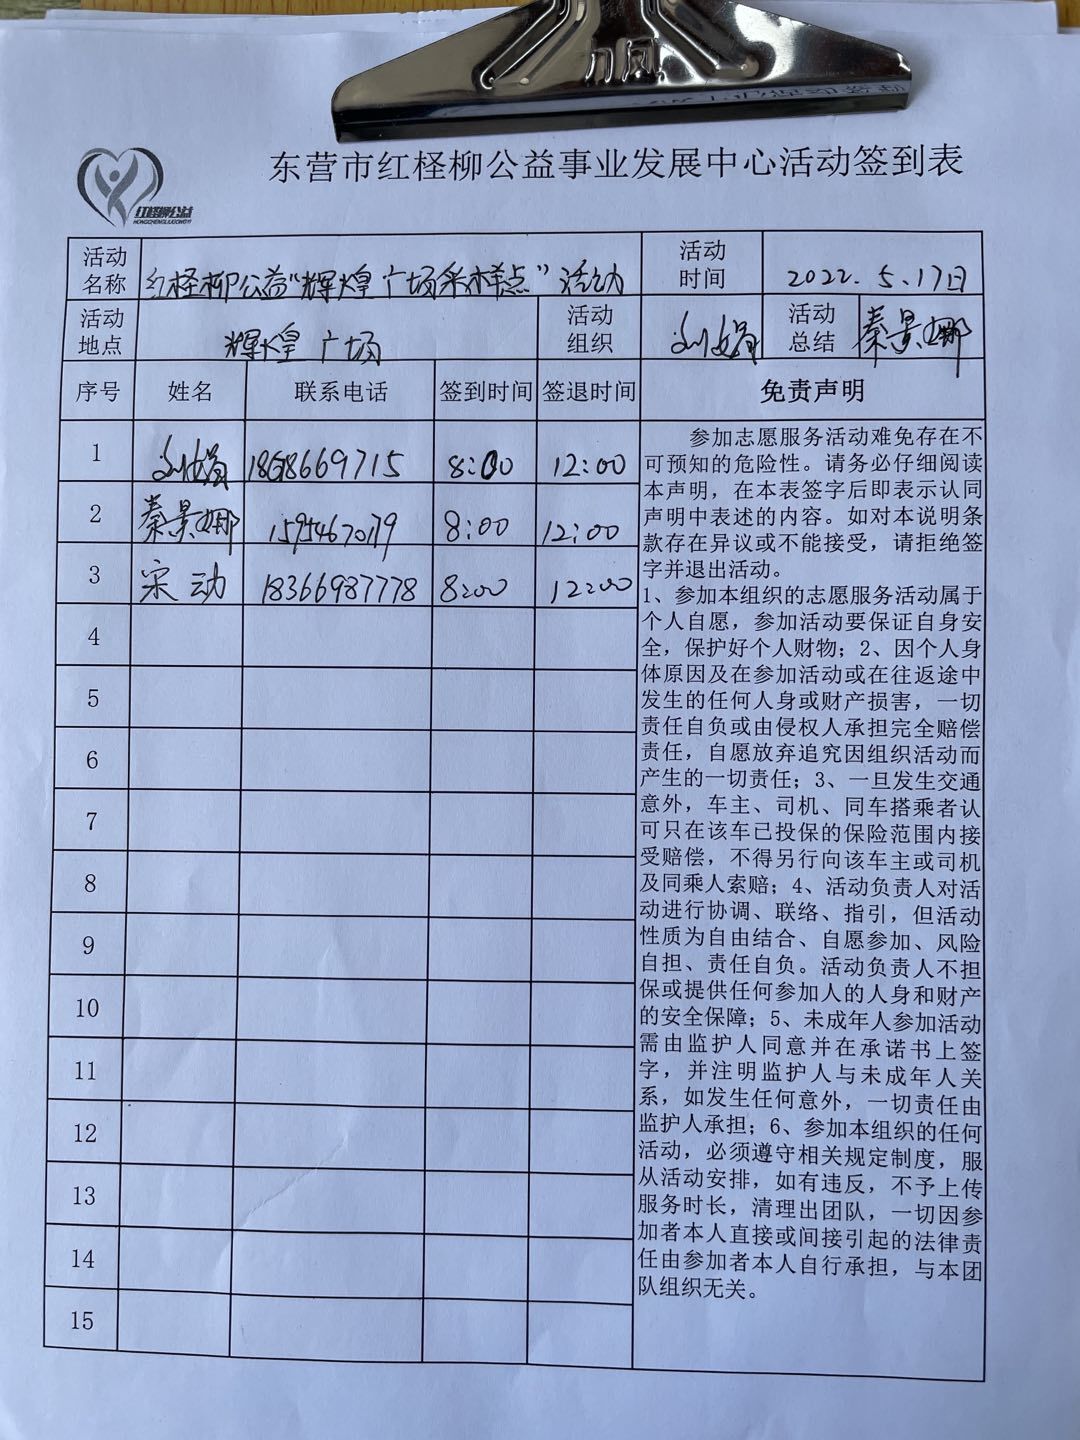 东营市红柽柳公益事业发展中心活动签到表
红柽柳公益
HONGCHENGLIUGONGYI
活动名称 红柽柳公益“辉煌广场采样点”活动 活动时间 2022.5.17日
活动地点 辉煌广场 活动组织 刘娟 活动总结 秦景娜
序号 姓名 联系电话 签到时间 签退时间 免责声明
1 刘娟 8:00 12:00
2 秦景娜 8:00 12:00
3 宋动 18366987778 8:00 12:00
4
5
6
7
8
9
10
11
12
13
14
15
参加志愿服务活动难免存在不
可预知的危险性。请务必仔细阅读
本声明，在本表签字后即表示认同
声明中表述的内容。如对本说明条
款存在异议或不能接受，请拒绝签
字并退出活动。
1、参加本组织的志愿服务活动属于
个人自愿，参加活动要保证自身安
全，保护好个人财物；2、因个人身
体原因及在参加活动或在往返途中
发生的任何人身或财产损害，一切
责任自负或由侵权人承担完全赔偿
责任，自愿放弃追究因组织活动而
产生的一切责任；3、一旦发生交通
意外，车主、司机、同车搭乘者认
可只在该车已投保的保险范围内接
受赔偿，不得另行向该车主或司机
及同乘人索赔；4、活动负责人对活
动进行协调、联络、指引，但活动
性质为自由结合、自愿参加、风险
自担、责任自负。活动负责人不担
保或提供任何参加人的人身和财产
的安全保障；5、未成年人参加活动
需由监护人同意并在承诺书上签
字，并注明监护人与未成年人关
系，如发生任何意外，一切责任由
监护人承担；6、参加本组织的任何
活动，必须遵守相关规定制度，服
从活动安排，如有违反，不予上传
服务时长，清理出团队，一切因参
加者本人直接或间接引起的法律责
任由参加者本人自行承担，与本团
队组织无关。